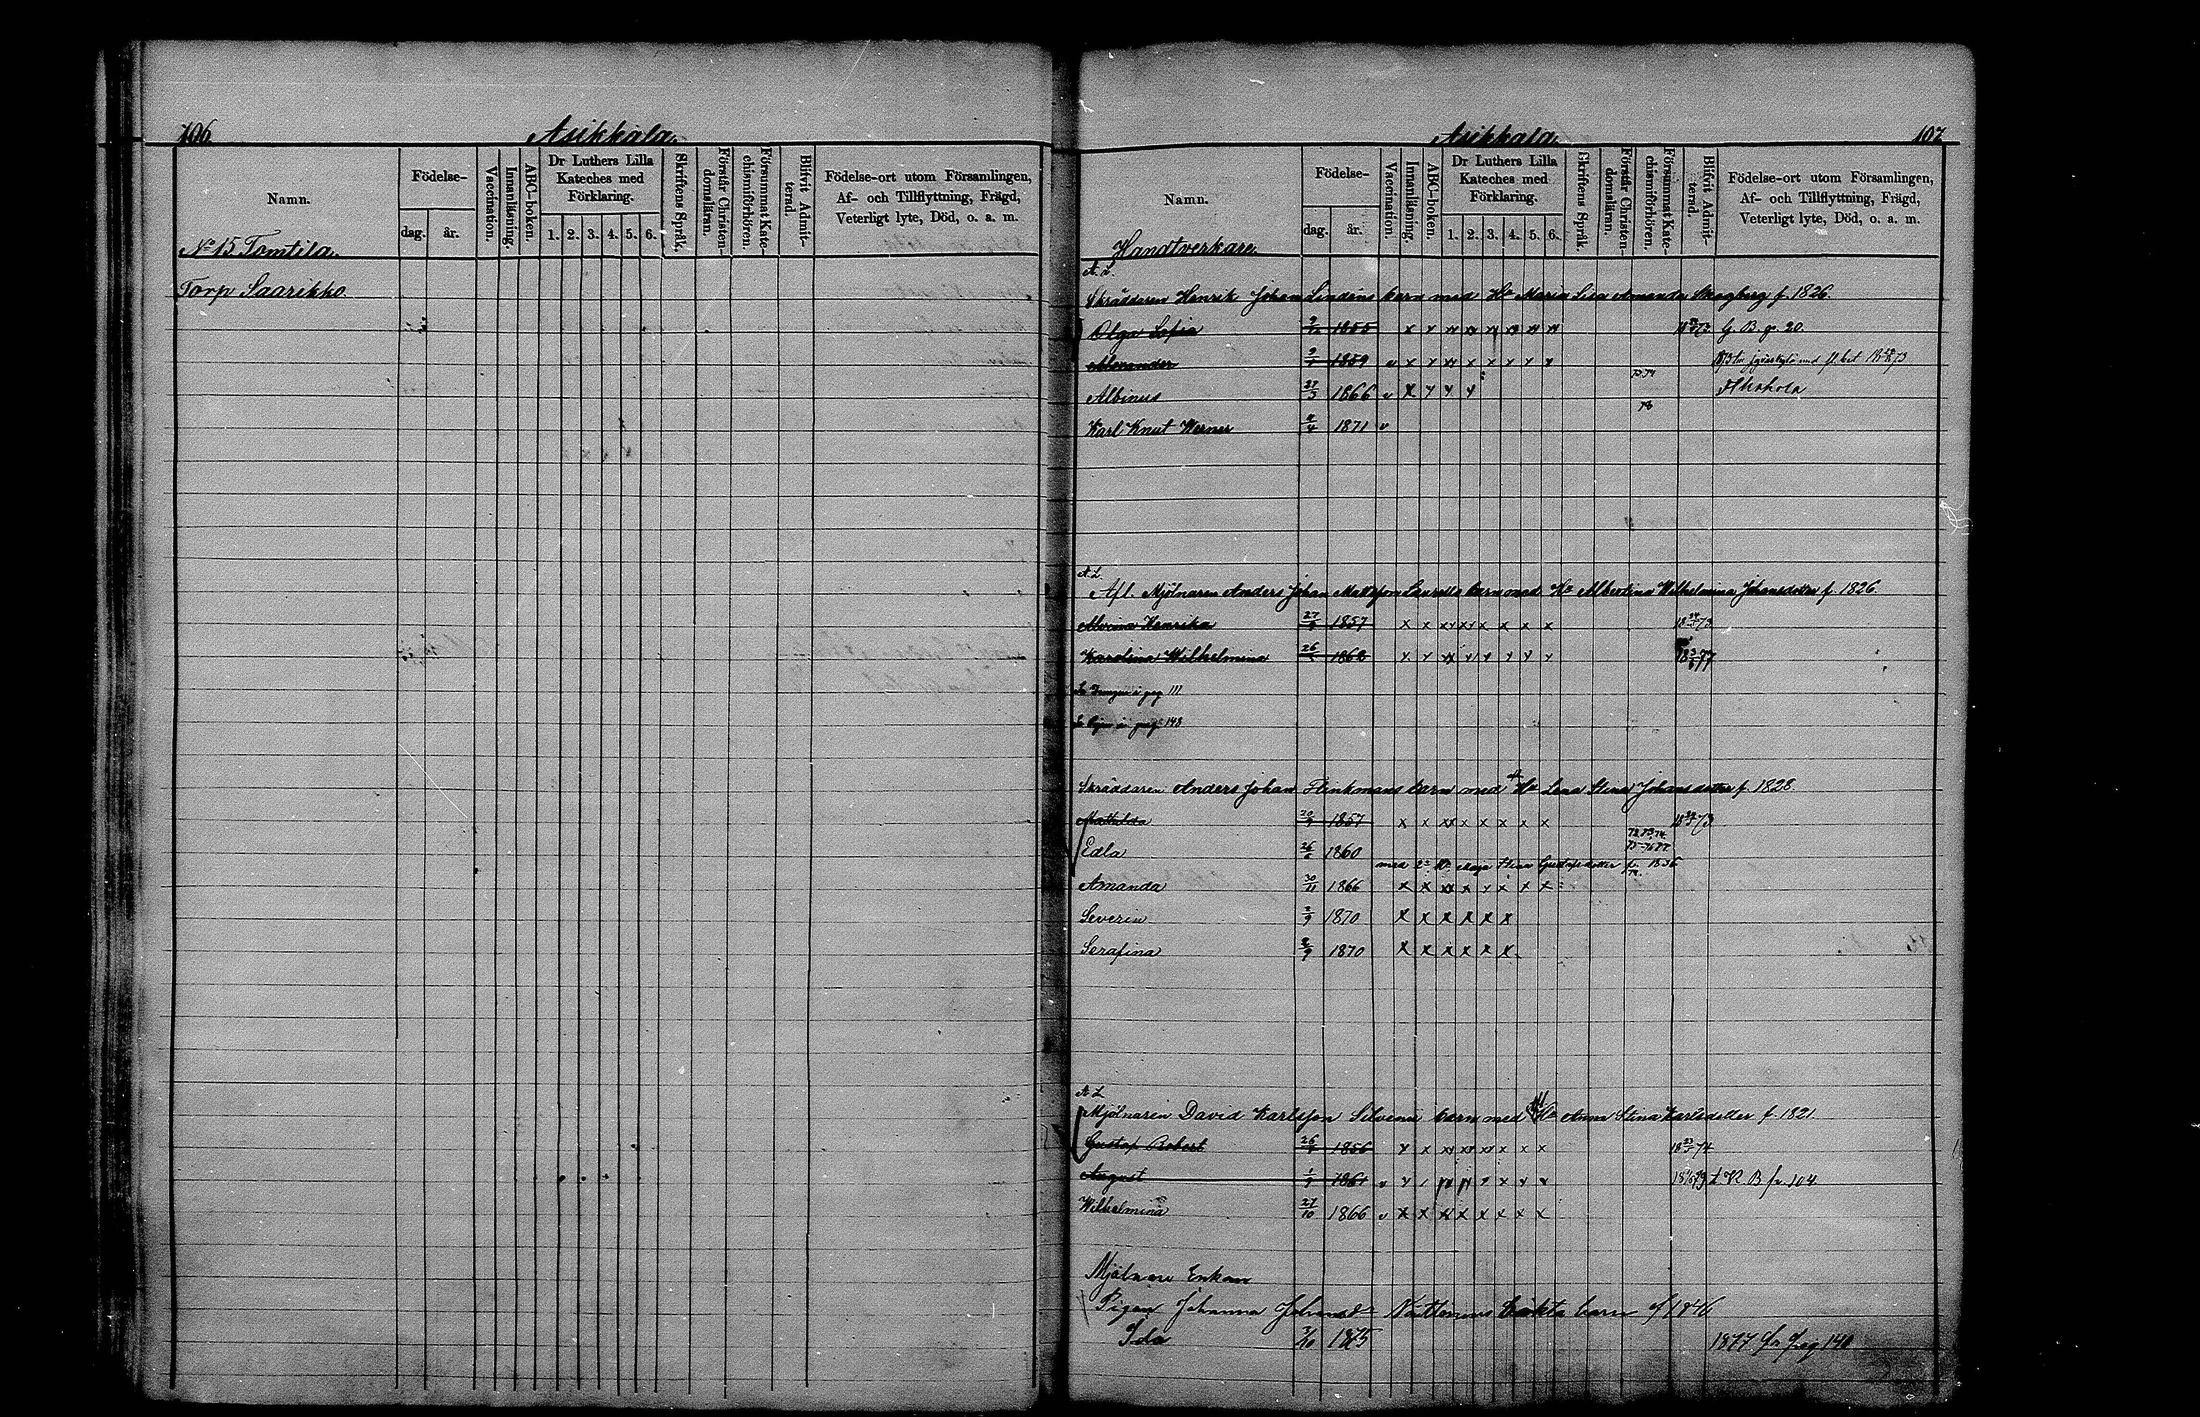 106.
Asikkala.
Namn.
Födelse-
dag.
år.
Vaccination.
Innanläsning.
ABC-boken.
Dr Luthers Lilla
Kateches med
Förklaring.
1. 2. 3. 4. 5. 6.
Skriftens Språk.
Förstår Christen-
domsläran.
Försummat Kate-
chismiförhören.
Blifvit Admit-
terad.
Födelse-ort utom Församlingen,
Af- och Tillflyttning, Frägd,
Veterligt lyte, Död, o. a. m.
No 15 Tomtila.
Torp Saarikko
Asikkala.
107
Namn.
Födelse-
dag.
år.
Vaccination.
Innanläsning.
ABC-boken.
Dr Luthers Lilla
Kateches med
Förklaring.
1. 2. 3. 4. 5. 6.
Skriftens Språk.
Förstår Christen-
domsläran.
Försummat Kate-
chismiförhören.
Blifvit Admit-
terad.
Födelse-ort utom Församlingen,
Af- och Tillflyttning, Frägd,
Veterligt lyte, Död, o. a. m.
Handtverkare.
A. L.
Skräddaren Henrik Johan Lindéns barn med Ha Maria Lisa Amanda Skogberg f. 1826.
Olga Sofia 1855 x x x x x x x x 73 G. B. 20.
Alexander 9 1859 v x x x x x x x x
73 74
Albinus 27/3 1866 v x x x x
78
Karl Knut Werner 4 1871 v
A. L.
Afl. Mjölnaren Anders Johan Mattsson barn med Ha Albertina Wilhelmina Johansdotter f. 1826.
Henrika 27 1857 x x x x x x x x 73
Karolina Wilhelmina 26 1862 x x x x x x x x 77
pag 111
pag 148
Skräddaren Anders Johan Flinkmans barn med Ha Lena Stina Johansdotter f. 1828.
Mathilda 1857 x x x x x x x x 73
72 73 74
75-76 77
Edla 26 1860
med 2a Ha Maja Stina Gustafsdotter f. 1836
Amanda 30/11 1866 x x x x x x x x
Severin 2/9 1870 x x x x x x
Serafina 2/9 1870 x x x x x x
A. L.
Mjölnaren David Karlsson Silvens barn med Ha Anna Stina Karlsdotter f. 1821
Gustaf Robert 26 1856 x x x x x x x x 74
August 1 1861 v x x x x x x x x 79 B 104
Wilhelmina 27/10 1866 v x x x x x x x x
Mjölnare Enkan
Pigan Johanna Johansdr oäkta barn f 1846
Ida 3/10 1875 1877 fr pag 140